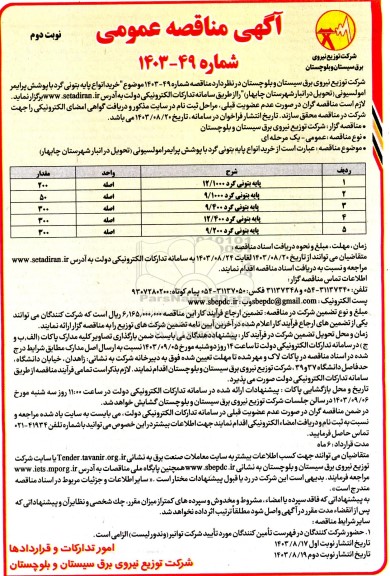 آگهی مناقصه عمومی
نوبت دوم
شماره ۴۹-۱۴۰۳
شرکت توزیع نیروی
برق سیستان و بلوچستان
شرکت توزیع نیروی برق سیستان و بلوچستان در نظر دارد مناقصه شماره ۴۹-۱۴۰۳ موضوع "خرید انواع پایه بتونی گرد با پوشش پرایمر
امولسیونی (تحویل در انبار شهرستان چابهار)" را از طریق سامانه تدارکات الکترونیکی دولت به آدرس www.setadiran.ir برگزار نماید.
لازم است مناقصه گران در صورت عدم عضویت قبلی، مراحل ثبت نام در سایت مذکور و دریافت گواهی امضای الکترونیکی را جهت
شرکت در مناقصه محقق سازند. تاریخ انتشار فراخوان در سامانه، تاریخ ۱۴۰۳/۰۸/۲۰ می باشد.
• مناقصه گزار: شرکت توزیع نیروی برق سیستان و بلوچستان
• نوع مناقصه: عمومی - یک مرحله ای
• موضوع مناقصه: عبارت است از خرید انواع پایه بتونی گرد با پوشش پرایمر امولسیونی (تحویل در انبار شهرستان چابهار)
ردیف شرح واحد مقدار
۱ پایه بتونی گرد ۱۲/۱۰۰۰ اصله ۲۰۰
۲ پایه بتونی گرد ۹/۱۰۰۰ اصله ۵۰
۳ پایه بتونی گرد ۹/۴۰۰ اصله ۳۰۰
۴ پایه بتونی گرد ۱۲/۴۰۰ اصله ۳۰۰
۵ پایه بتونی گرد ۹/۲۰۰ اصله ۳۰۰
زمان، مهلت، مبلغ و نحوه دریافت اسناد مناقصه:
متقاضیان می توانند از تاریخ ۱۴۰۳/۰۸/۲۰ لغایت ۱۴۰۳/۰۸/۲۴ به سامانه تدارکات الکترونیکی دولت به آدرس www.setadiran.ir
مراجعه و نسبت به دریافت اسناد مناقصه اقدام نمایند.
اطلاعات تماس مناقصه گزار:
تلفن: ۳۱۱۳۷۳۴۰-۰۵۴ و ۳۱۱۳۷۳۴۸ فکس: ۳۱۱۳۷۰۵۰-۰۵۴ پیام کوتاه: ۹۳۰۷۲۸۰۲۰۰
پست الکترونیک: sbepdc@gmail.com وب سایت: www.sbepdc.ir
مبلغ و نوع تضمین شرکت در مناقصه: تضمین ارجاع فرآیند کار این مناقصه ۶,۱۶۵,۰۰۰,۰۰۰ ریال است که شرکت کنندگان می توانند
یکی از تضمین های ارجاع فرآیند کار اعلام شده در آخرین آیین نامه تضمین شرکت های توزیع را به مناقصه گزار ارائه نمایند.
زمان و محل تحویل تضمین شرکت در فرآیند کار: پیشنهاددهندگان می بایست ضمن بارگذاری تصاویر کلیه مدارک پاکات (الف، ب و
ج) در سامانه تدارکات الکترونیکی دولت تا ساعت ۱۴ روز دوشنبه مورخ ۱۴۰۳/۰۹/۰۵ نسبت به ارسال اصل مدارک مطابق شرایط درج
شده در اسناد مناقصه در پاکات لاک و مهر شده تا مهلت تعیین شده فوق به دبیرخانه شرکت به نشانی: زاهدان، خیابان دانشگاه،
حدفاصل دانشگاه ۳۷ و ۳۹، شرکت توزیع نیروی برق سیستان و بلوچستان اقدام نمایند. لازم بذکر است تمامی فرآیند مناقصه از طریق
سامانه تدارکات الکترونیکی دولت صورت می پذیرد.
تاریخ و محل بازگشایی پاکات: پیشنهادات ارائه شده در سامانه تدارکات الکترونیکی دولت در ساعت ۱۱:۰۰ روز سه شنبه مورخ
۱۴۰۳/۰۹/۰۶ در سالن جلسات شرکت توزیع نیروی برق سیستان و بلوچستان گشایش خواهد شد.
در ضمن مناقصه گران در صورت عدم عضویت قبلی در سامانه تدارکات الکترونیکی دولت، می بایست به سایت یاد شده مراجعه و
نسبت به ثبت نام و دریافت امضاء الکترونیکی اقدام نمایند جهت اطلاعات بیشتر در این خصوص می توانید با شماره تلفن ۴۱۹۳۴-۰۲۱
تماس حاصل فرمایید.
مدت قرارداد: ۶ ماه
متقاضیان می توانند جهت کسب اطلاعات بیشتر به سایت معاملات صنعت برق به نشانی Tender.tavanir.org.ir یا سایت شرکت
توزیع نیروی برق سیستان و بلوچستان به نشانی www.sbepdc.ir همچنین پایگاه ملی مناقصات به آدرس www.iets.mporg.ir
مراجعه فرمایند. بدیهی است این شرکت در رد یا قبول پیشنهادات مختار است. « سایر اطلاعات و جزئیات مربوط در اسناد مناقصه
مندرج است.»
به پیشنهاداتی که فاقد سپرده یا امضاء، مشروط و مخدوش و سپرده های کمتر از میزان مقرر، چک شخصی و نظایر آن و پیشنهاداتی که
پس از انقضاء مدت مقرر در آگهی واصل شود مطلقا ترتیب اثر داده نخواهد شد.
سایر شرایط مناقصه:
۱. حضور شرکت کنندگان در فهرست تأمین کنندگان مورد تأیید شرکت توانیر (وندور لیست) الزامی است.
تاریخ انتشار نوبت اول ۱۴۰۳/۸/۱۷
تاریخ انتشار نوبت دوم ۱۴۰۳/۸/۱۹
امور تدارکات و قراردادها
شرکت توزیع نیروی برق سیستان و بلوچستان